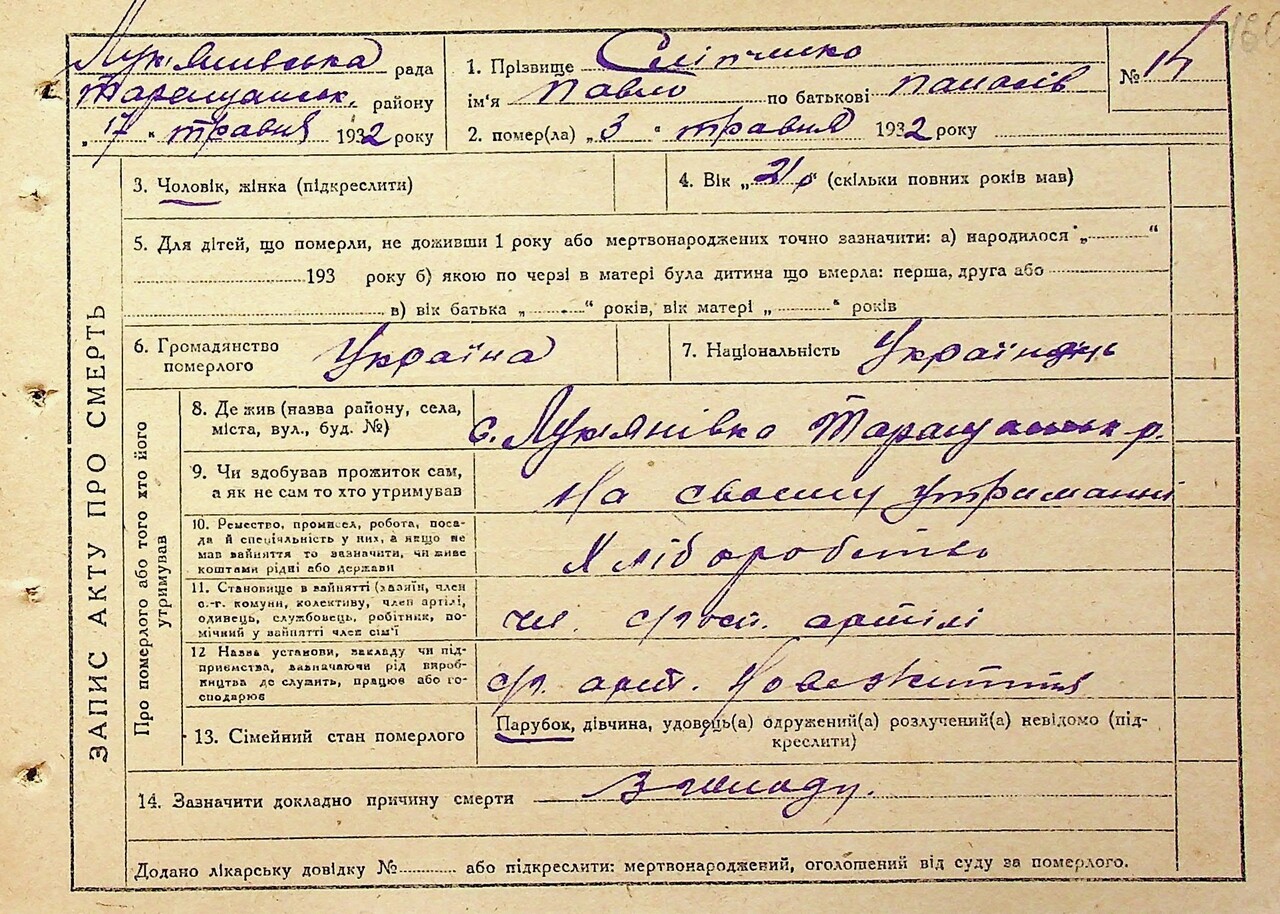 Лук'янівська рада
Таращанськ. району
„17“ травня 1932 року
1. Прізвище Сліпченко
ім'я Павло по батькові панасів
№ 14
2. помер(ла) „3“ травня 1932 року
ЗАПИС АКТУ ПРО СМЕРТЬ
3. Чоловік, жінка (підкреслити)
4. Вік „21р“ (скільки повних років мав)
5. Для дітей, що померли, не доживши 1 року або мертвонароджених точно зазначити: а) народилося „ “
193 року б) якою по черзі в матері була дитина що вмерла: перша, друга або
в) вік батька „ “ років, вік матері „ “ років
6. Громадянство
померлого
Україна
7. Національність Українець
Про померлого або того хто його
утримував
8. Де жив (назва району, села,
міста, вул., буд. №)
с. Лукянівка Таращанськ р.
9. Чи здобував прожиток сам,
а як не сам то хто утримував
На своєму утриманні
10. Ремество, промисел, робота, поса-
да й спеціяльність у них, а якщо не
мав вайняття то зазначити, чи живе
коштами рідні або держави
Хліборобство
11. Становище в вайнятті (хазяїн, член
с.-г. комуни, колективу, член артілі,
одивець, службовець, робітник, по-
мічний у вайнятті член сім'ї
чл. с/госп. артілі
12 Назва установи, закладу чи під-
приємства, вазначаючи рід вироб-
ництва де служить, працює або го-
сподарює
с/г. арт. Нове життя
13. Сімейний стан померлого
Парубок, дівчина, удовець(а) одружений(а) розлучений(а) невідомо (під-
креслити)
14. Зазначити докладно причину смерти З голоду.
Додано лікарську довідку № або підкреслити: мертвонароджений, оголошений від суду за померлого.